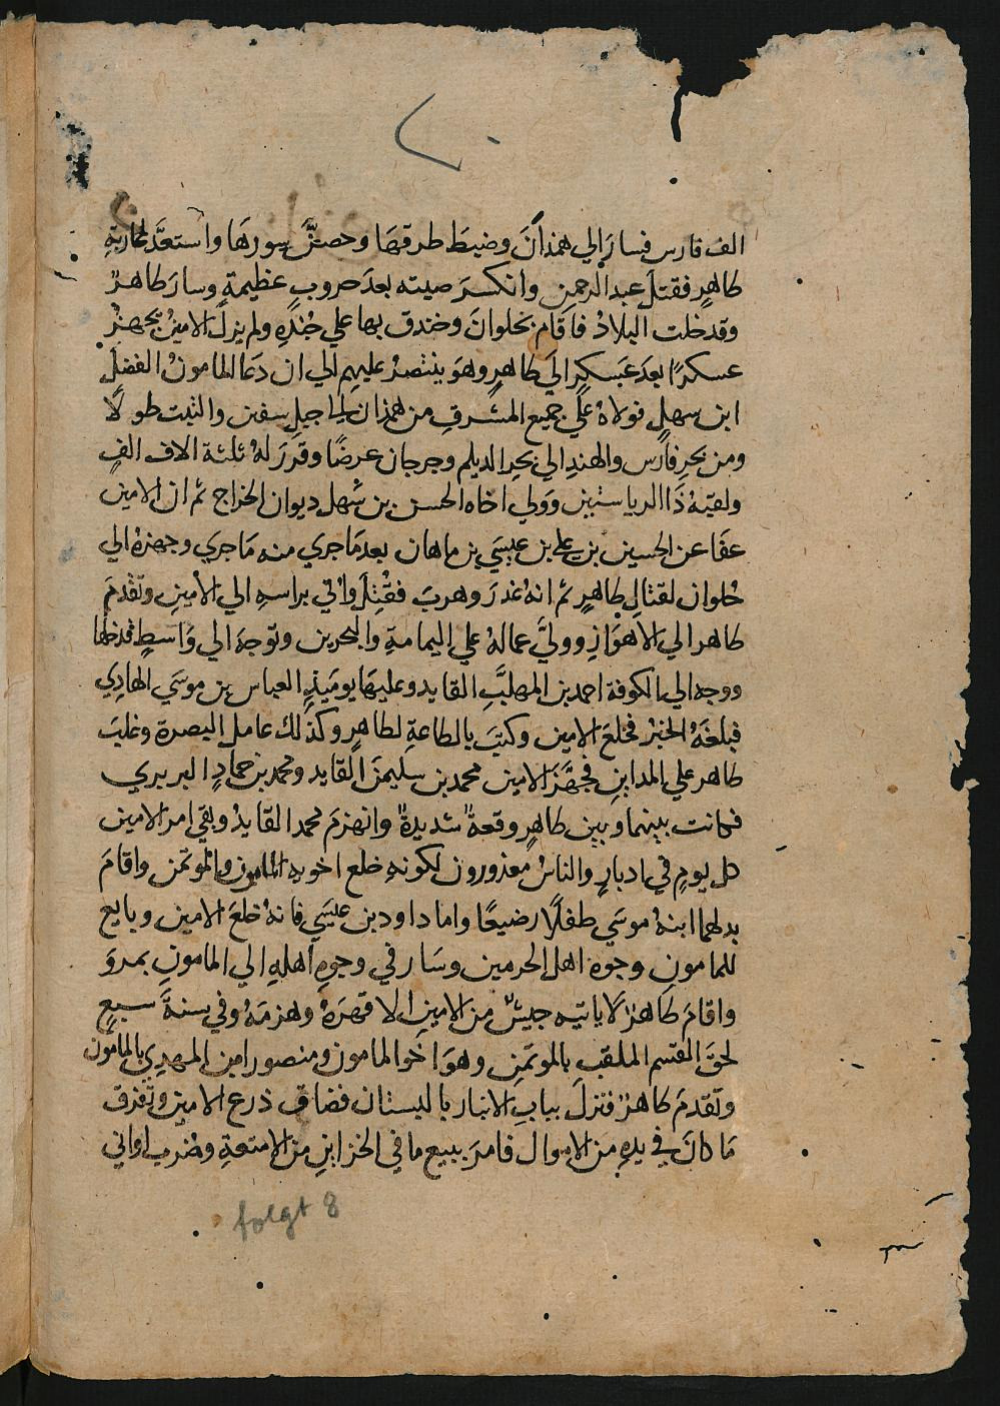 الف فارس فسارَ الي همذانَ وضبطَ طرقها وحصنَّ سورها واستعدَّ لمحاربةِ
طاهرٍ فقتلَ عبد الرحمن وانكسرَ صيته بعدَ حروبٍ عظيمةٍ وسارَ طاهرٌ
وقد خلت البلادُ فاقام بحلوانَ وخندق بها علي جُندِهِ ولم يزل الامينُ يجهزُ
عسكرًا بعدَ عسكرٍ الي طاهرٍ وهوَ ينتصرُ عليهم الي ان دَعَا المامونُ الفضلَ
ابن سهلٍ فولاهُ علي جميع المشرقِ من همذان الي جبلِ سفين والتبت طولًا
ومن بحرِ فارس والهندِ الي بحرِ الديلم وجرجان عرضًا وقررَ لهُ ثلثة الاف الفٍ
ولقبهُ ذَا الرياستين وولي اخاه الحسن بن سهل ديوان الخراج ثم ان الامين
عفَا عن الحسين بن علي بن عيسَي بن ماهان بعدمَا جري منه مَا جري وجهزهُ الي
حُلوان لقتالِ طاهرٍ ثم انهُ غدرَ وهربَ فقُتِلَ واُتي براسهِ الي الامينِ وتقدمَ
طاهر الي الاهوَازِ ووليَّ عمالهُ علي اليمامةِ والبحرين وتوجهَ الي وَاسطٍ فدخلها
ووجه الي الكوفة احمد بن المهلبَّ القايد وعليهَا يوميَذٍ العباس بن موسَي الهادِي
فبلغَهُ الخبرُ فخلعَ الامين وكتبَ بالطاعةِ لطاهرٍ وكذلك عامل البصرة وغلبَ
طاهر علي المداينِ فجهَّزَ الامين محمد بن سليمنَ القايد ومحمد بن حمادٍ البربري
فكانت بينهما وبين طاهرٍ وقعةٌ شديدةٌ وانهزمَ محمد القايدُ وبقي امر الامين
كل يومٍ في ادبارٍ والناسُ معذورون لكونهِ خلع اخويه المامون والموتمن واقامَ
بدلهما ابنهُ موسَي طفلًا رضيعًا واما داود بن عيسَي فانهُ خلعَ الامين وبايع
للمامونِ وجوه اهل الحرمين وسَار في وجوهِ اهلهِ الي المامونِ بمروَ
واقامَ طاهرٌ لا ياتيه جيشٌ من الامينِ الا قهرَهُ وهزمَهُ وفي سنةَ سبعٍ
لحقَ القسم الملقب بالموتمنِ وهوَ اخوا المامون ومنصور ابن المهدِي بالمامون
وتقدمَ طاهرٌ فنزلَ ببابِ الانبار بالبستان فضاق ذرع الامينِ وتفرق
مَا كانَ في يدهِ من الاموال فامرَ ببيع ما في الخزاينِ من الامتعةِ وضُربَ اواني
folgt 8